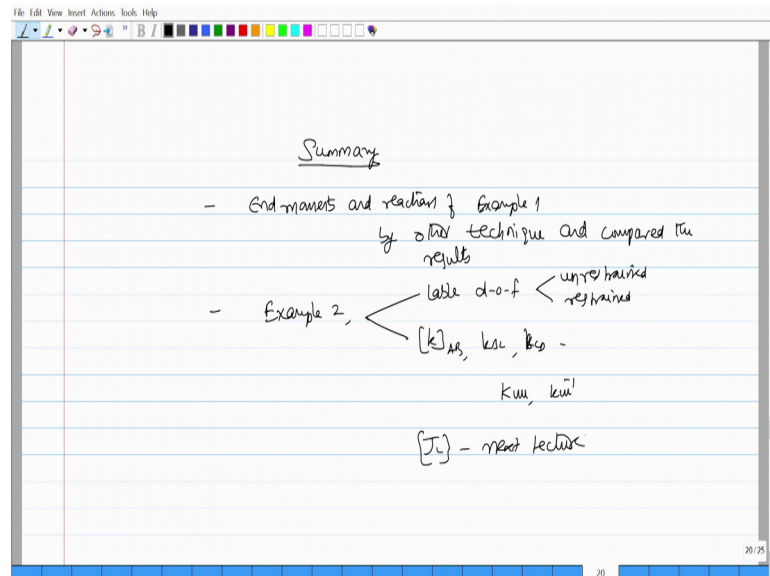 File Edit View Insert Actions Tools Help
B I
Summary
- End moments and reactions of Example 1
by other technique and compared the
results
- Example 2,
lable d-o-f
unrestrained
restrained
[k]AB, kBC, kCD -
Kuu, kuu⁻¹
[JL] - next lecture
20/25
20